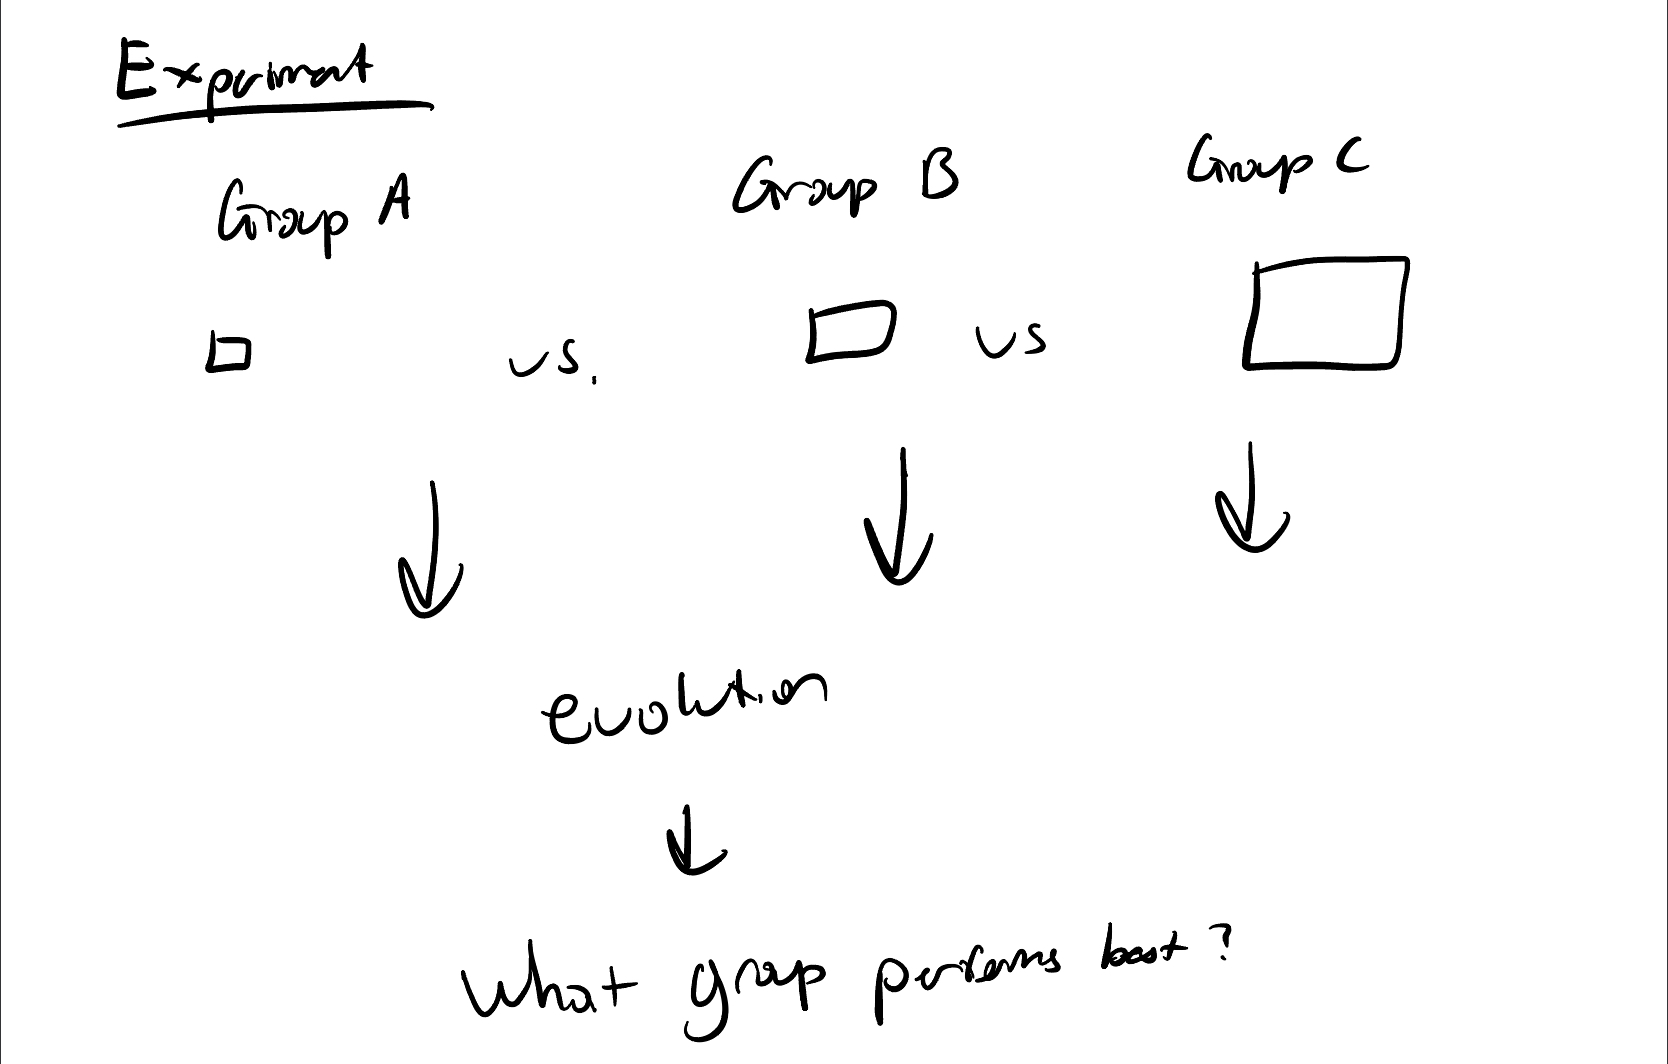 Experiment
Group A
Group B
Group C
vs.
vs
evolution
What group performs best?